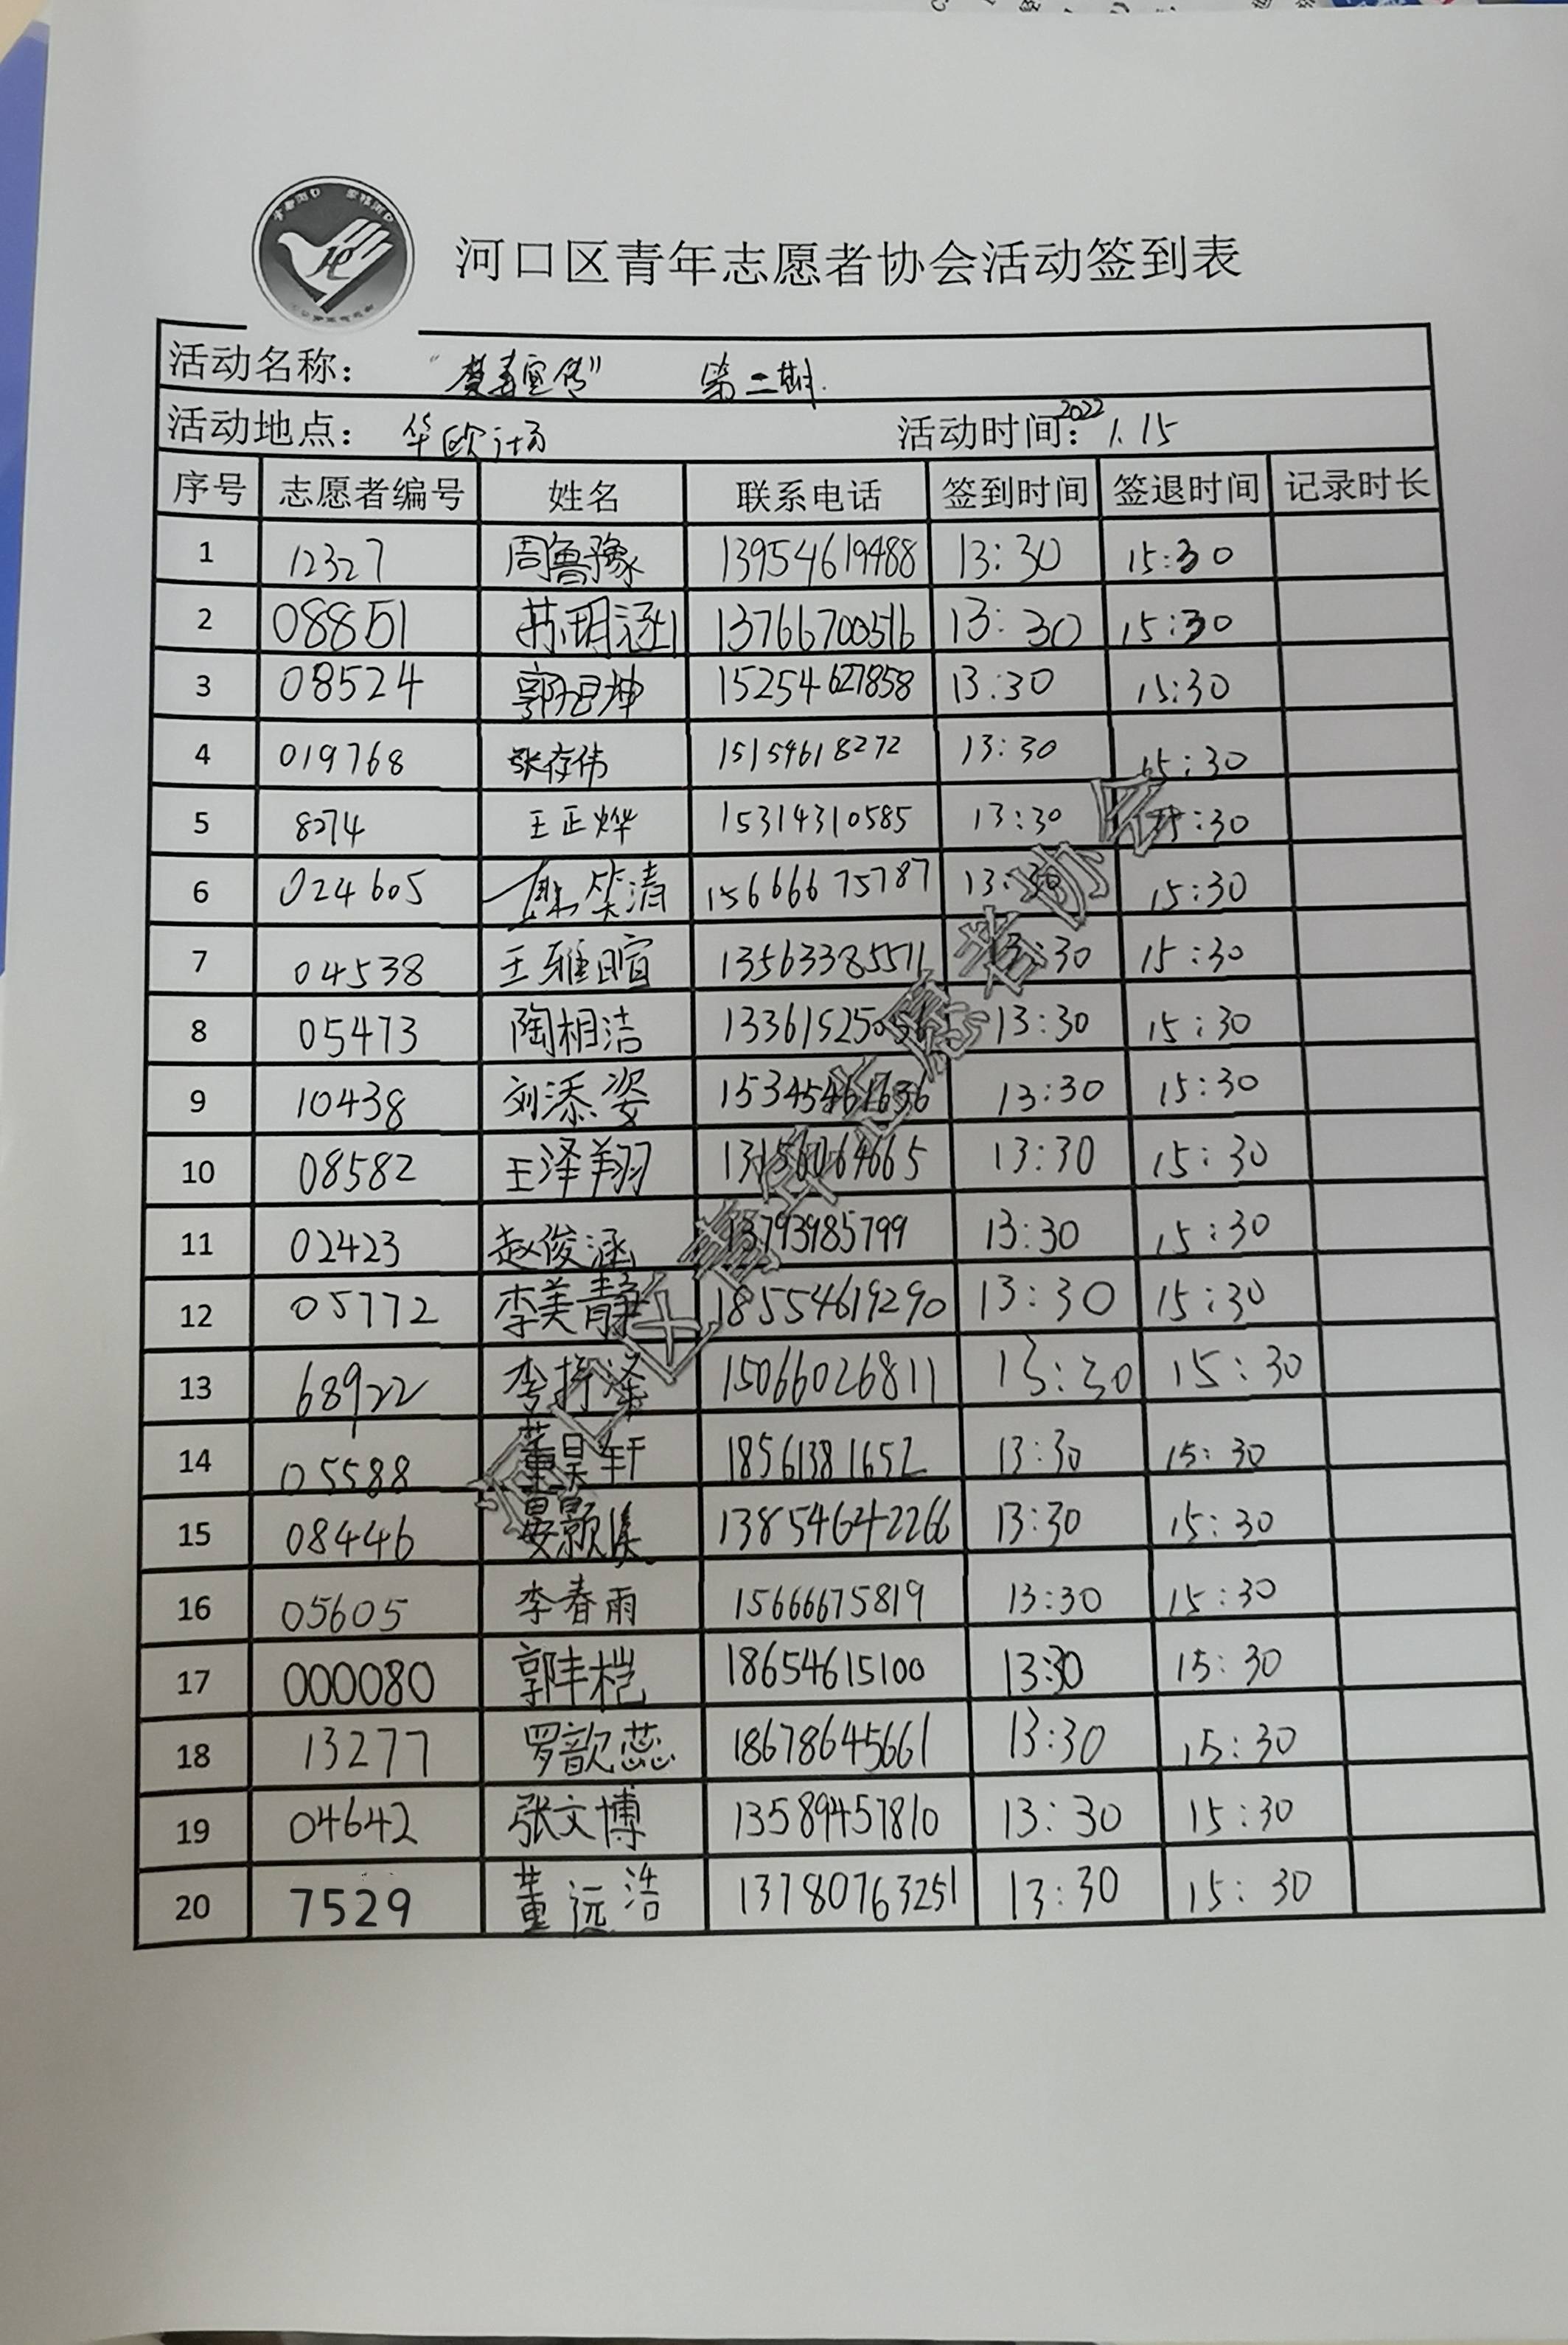 河口区青年志愿者协会活动签到表
活动名称： “禁毒宣传” 第二期.
活动地点： 华欧广场 活动时间：2022 1.15
序号 志愿者编号 姓名 联系电话 签到时间 签退时间 记录时长
1 12327 周鲁豫 13954619488 13:30 15:30
2 08851 苏玥涵 13766700516 13:30 15:30
3 08524 15254627858 13:30 15:30
4 019768 张存伟 15154618272 13:30 15:30
5 8274 王正烨 15314310585 13:30 15:30
6 024605 笑清 15666675787 13:30 15:30
7 04538 王雅暄 13563385571 13:30 15:30
8 05473 陶相洁 13:30 15:30
9 10438 刘添姿 13:30 15:30
10 08582 王泽翔 13:30 15:30
11 02423 赵俊涵 13793985799 13:30 15:30
12 05772 李美静 18554619290 13:30 15:30
13 68922 15066026811 13:30 15:30
14 05588 董昊轩 18561381652 13:30 15:30
15 08446 晏颢溪 13854642266 13:30 15:30
16 05605 李春雨 15666675819 13:30 15:30
17 000080 郭丰桤 18654615100 13:30 15:30
18 13277 罗歆蕊 18678645661 13:30 15:30
19 04642 张文博 13589457810 13:30 15:30
20 7529 董远浩 13780763251 13:30 15:30
河口区青年志愿者协会